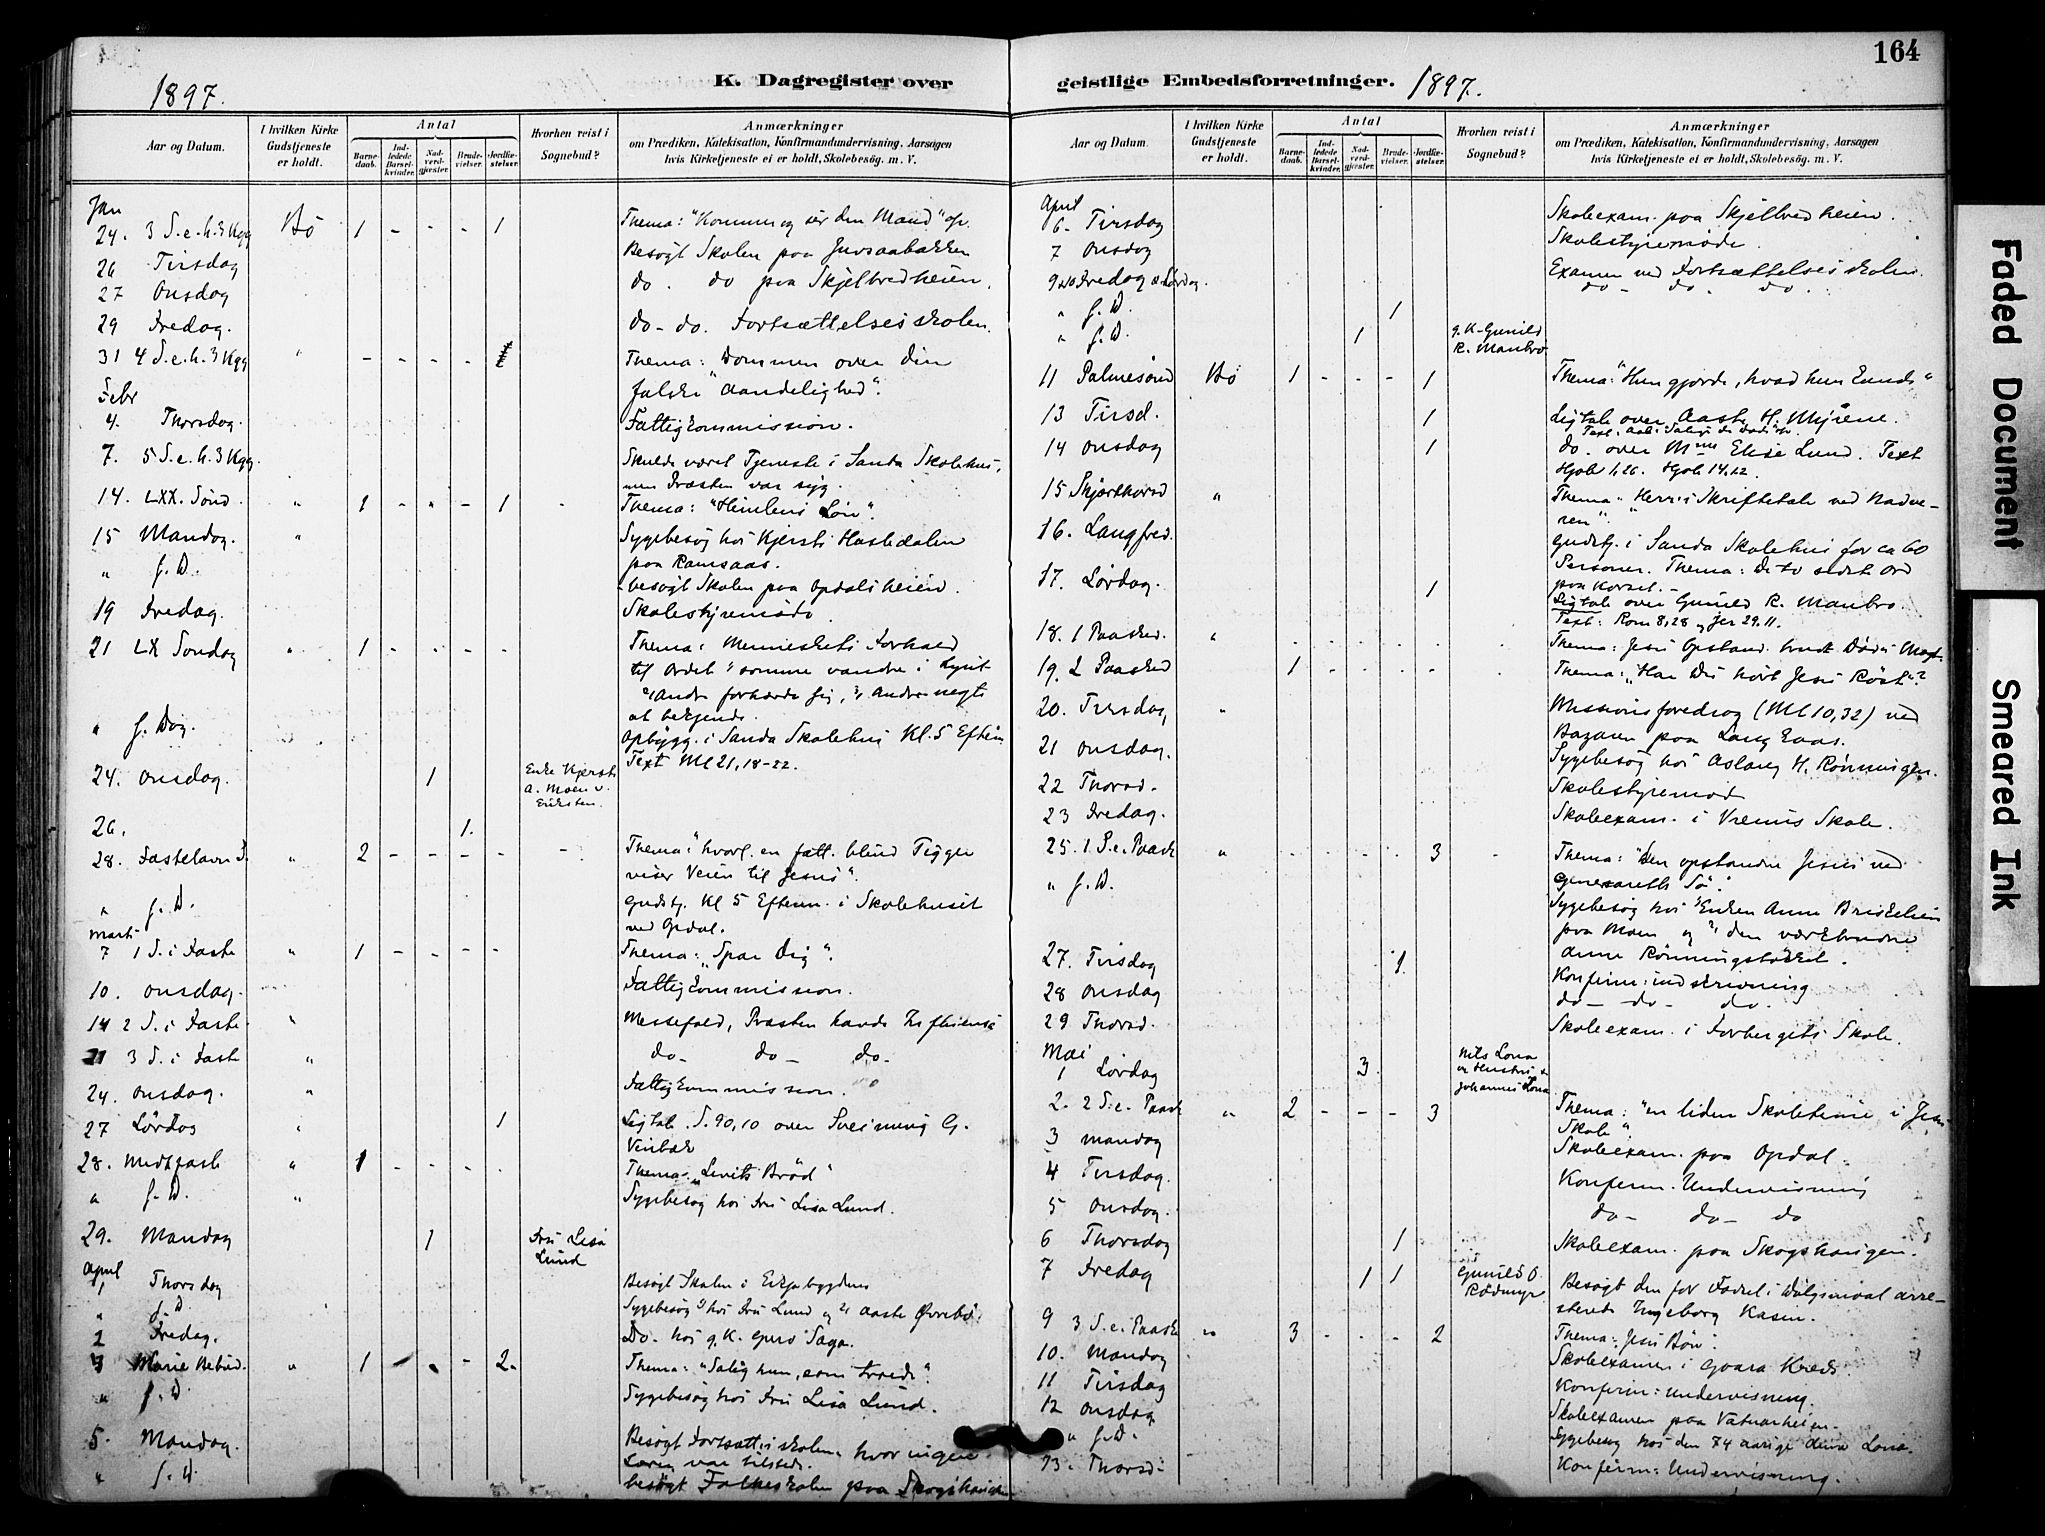 164
1897.
K. Dagregister over
Aar og Datum.
I hvilken Kirke Gudstjeneste er holdt.
Antal
Barnedaab.
Indledede Barselkvinder.
Nadverdgjæster.
Brudevielser.
Jordfæstelser.
Hvorhen reist i Sognebud?
Anmærkninger
om Prædiken, Katekisation, Konfirmandundervisning, Aarsagen
hvis Kirketjeneste ei er holdt, Skolebesøg. m. V.
Jan
24. 3 S. e. h. 3 Kgg Bö 1 - - - 1 Thema: "Komm og sér den Mand" ofr.
26 Tirsdag Besögt Skolen paa
27 Onsdag do. do paa Skjelbredheien.
29 Fredag. do- do. Fortsættelsesskolen.
31 4 S. e. h. 3 Kgg " - - - - Thema: Dommen over din
falske "Aandelighed".
Febr
4. Thorsdag. Fattigkommission.
7. 5 S. e. h. 3 Kgg. Skulde været Tjeneste i Sanda Skolehus,
men Præsten var syg.
14. LXX. Sönd. " 1 - " - 1 - Thema: "Himlens Lön".
15 Mandag. " Sygebesög hos Kjersti Hastedalen
paa Ramsaas.
" s. D. besögt Skolen paa Opdalsheien.
19 Fredag. Skolestyremöde.
21 LX Sondag " 1 - - - - Thema: Menneskets Forhold
til Ordet 1) somme vandre i Lyset
2) Andre forhærde sig, 3) Andre negte
at bekjende.
" s. Dag. Opbygg. i Sanda Skolehus Kl. 5 Efterm
Text Mt 21, 18-22.
24. Onsdag. 1 Enke Kjersti
A. Moen v.
26. 1.
28. Fastelavn S. " 2 - - - - - Thema: "hvorl. en fatt. blind Tigger
viser Veien til Jesus".
" s. D. Gudstj. Kl 5 Efterm. i Skolehuset
ved Opdal.
Marts
7 1 S. i Faste " 1 - - - - Thema: "Spar dig".
10. Onsdag. Fattigkommission.
14 2 S. i Faste " Messefald, Præsten havde
21 3 S. i Faste " do- do- do-
24. Onsdag. " Fattigkommission.
27 Lördag 1 Ligtale S. 90,10 over Sveinung G.
28. Midtfaste " 1 - - - - Thema: "Livets Bröd"
" s. D. " Sygebesög hos Fru Lisa Lund.
29. Mandag 1 Fru Lisa
Lund
April
1 Thorsdag Besögt Skolen i
" s. D Sygebesög 1) hos Fru Lund og 2) Aaste
2 Fredag. Do- hos g. K. Guro Saga.
4 Marie Bebud. " 1 - - - 2. Thema: "Salig hun, som troede".
" s. D Sygebesög hos Fru Lisa Lund.
5. Mandag. Besögt Fortsætt.s skolen hvor ingen
Lærer var tilstede.
" s. D. besögt Folkeskolen paa
geistlige Embedsforretninger.
1897.
Aar og Datum.
I hvilken Kirke Gudstjeneste er holdt.
Antal
Barnedaab.
Indledede Barselkvinder.
Nadverdgjæster.
Brudevielser.
Jordfæstelser.
Hvorhen reist i Sognebud?
Anmærkninger
om Prædiken, Katekisation, Konfirmandundervisning, Aarsagen
hvis Kirketjeneste ei er holdt, Skolebesøg. m. V.
April
6. Tirsdag Skoleexam. paa Skjelbredheien.
7 Onsdag Skolestyremöde.
9 & 10 Fredag & Lördag. Examen ved Fortsættelsesskolen.
do- do- do-
" s. D. 1
" s. D. 1 g. K. Gunild
R. Manbro
11 Palmesönd Bö 1 - - - 1 Thema: "Hun gjorde, hvad hun kunde"
13 Tirsd. 1 Ligtale over Aaste H. Myrene.
14 Onsdag 1 do. over Mme Elise Lund. Text
Hjob 1,26. Hjob 14,12
15 Skjærthorsd " Thema "Herr: i Skriftetale ved Nadve-
ren".
16. Langfred. Gudstj. i Sanda Skolehus for ca 60
Personer. Thema: De to sidste Ord
paa Korset.-
17. Lördag. 1 Ligtale over Gunild R. Manbro.
Text: Rom 8,28 og Jer 29.11.
18. 1 Paasked. " - - - - - Thema: Jesu Opstand. brudt Döds Magt.
19. 2 Paasked 1 - - - - Thema: "Har Du hört Jesu Röst"?
20. Tirsdag " Missionsforedrag (Mt 10,32) ved
Bazaren paa
21 Onsdag. Sygebesög hos Aslaug H. Rönningen.
22 Thorsd. Skolestyremöde
23 Fredag. Skoleexam. i Vreims Skole.
25. 1 S. e. Paaske " - - - - 3 - Thema: "Den opstandne Jesus ved
Genesareths Sö".
" s. D. Sygebesög hos 1) Enken Anne
paa Moen og 2) den værkbrudne
27. Tirsdag 1. Anne
28 Onsdag Konfirm: indskrivning
do- do- do-
29 Thorsd. Skoleexam. i Forbergets Skole.
Mai
1 Lördag 3 Nils Lona
og Hustru &
Johannes Lona
2. 2 S. e. Paaske " 2 - - - 3 Thema: "en liden Skoletime i Jesu
Skole".
3 Mandag Skoleexam. paa Opdal.
4 Tirsdag. Konfirm. Undervisning
5 Onsdag. do- do- do
6 Thorsdag 1 Skoleexam. paa Skogshaugen.
7 Fredag 1 1 Gunild O.
Rödmyr Besögt den for Födsel i Dölgsmaal arre-
sterede Ingeborg Kasin.
9 3 S. e. Paaske " 3 - - - 2 Thema: Jesu Bön.
10. Mandag Skoleexamen i Gvara Kreds.
11 Tirsdag Konfirm: undervisning.
12 Onsdag Skoleexamen paa
" s. D. Sygebesög hos den 74 aarige Anna Lona.
13. Thorsd. Konfirm: Undervisning.
Faded Document
Smeared Ink